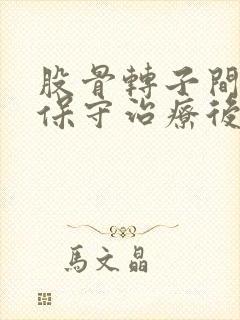 股骨轉子間
保守治療後
馬文晶